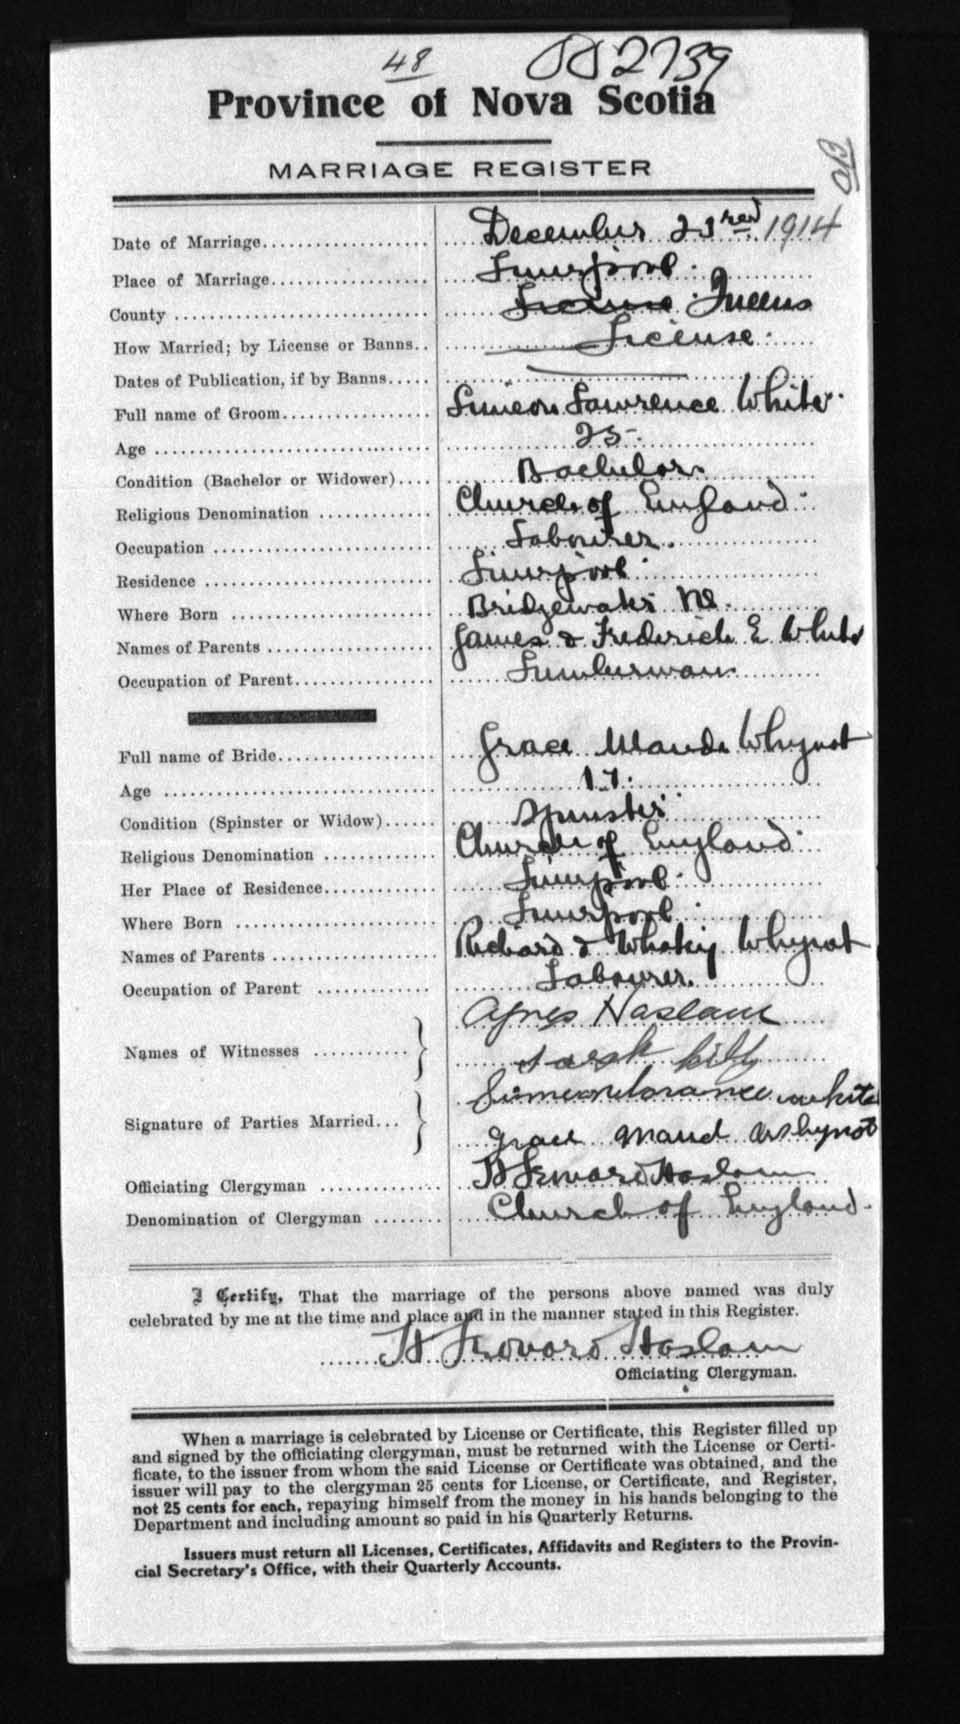 48
2739
Province of Nova Scotia
MARRIAGE REGISTER
Date of Marriage December 23rd 1914
Place of Marriage Liverpool
County License Queens
How Married; by License or Banns License
Dates of Publication, if by Banns
Full name of Groom Simeon Lawrence White
Age 25
Condition (Bachelor or Widower) Bachelor
Religious Denomination Church of England
Occupation Labourer
Residence Liverpool
Where Born Bridgewater NS
Names of Parents James & Frederick E White
Occupation of Parent Lumberman
Full name of Bride Grace Maude Whynot
Age 17
Condition (Spinster or Widow) Spinster
Religious Denomination Church of England
Her Place of Residence Liverpool
Where Born Liverpool
Names of Parents Richard & Whynot
Occupation of Parent Labourer
Names of Witnesses Agnes Haslam
Signature of Parties Married Simeon lorance white
grace maud whynot
Officiating Clergyman Haslam
Denomination of Clergyman Church of England
I Certify, That the marriage of the persons above named was duly
celebrated by me at the time and place and in the manner stated in this Register.
Haslam
Officiating Clergyman.
When a marriage is celebrated by License or Certificate, this Register filled up
and signed by the officiating clergyman, must be returned with the License or Certi-
ficate, to the issuer from whom the said License or Certificate was obtained, and the
issuer will pay to the clergyman 25 cents for License, or Certificate, and Register,
not 25 cents for each, repaying himself from the money in his hands belonging to the
Department and including amount so paid in his Quarterly Returns.
Issuers must return all Licenses, Certificates, Affidavits and Registers to the Provin-
cial Secretary's Office, with their Quarterly Accounts.